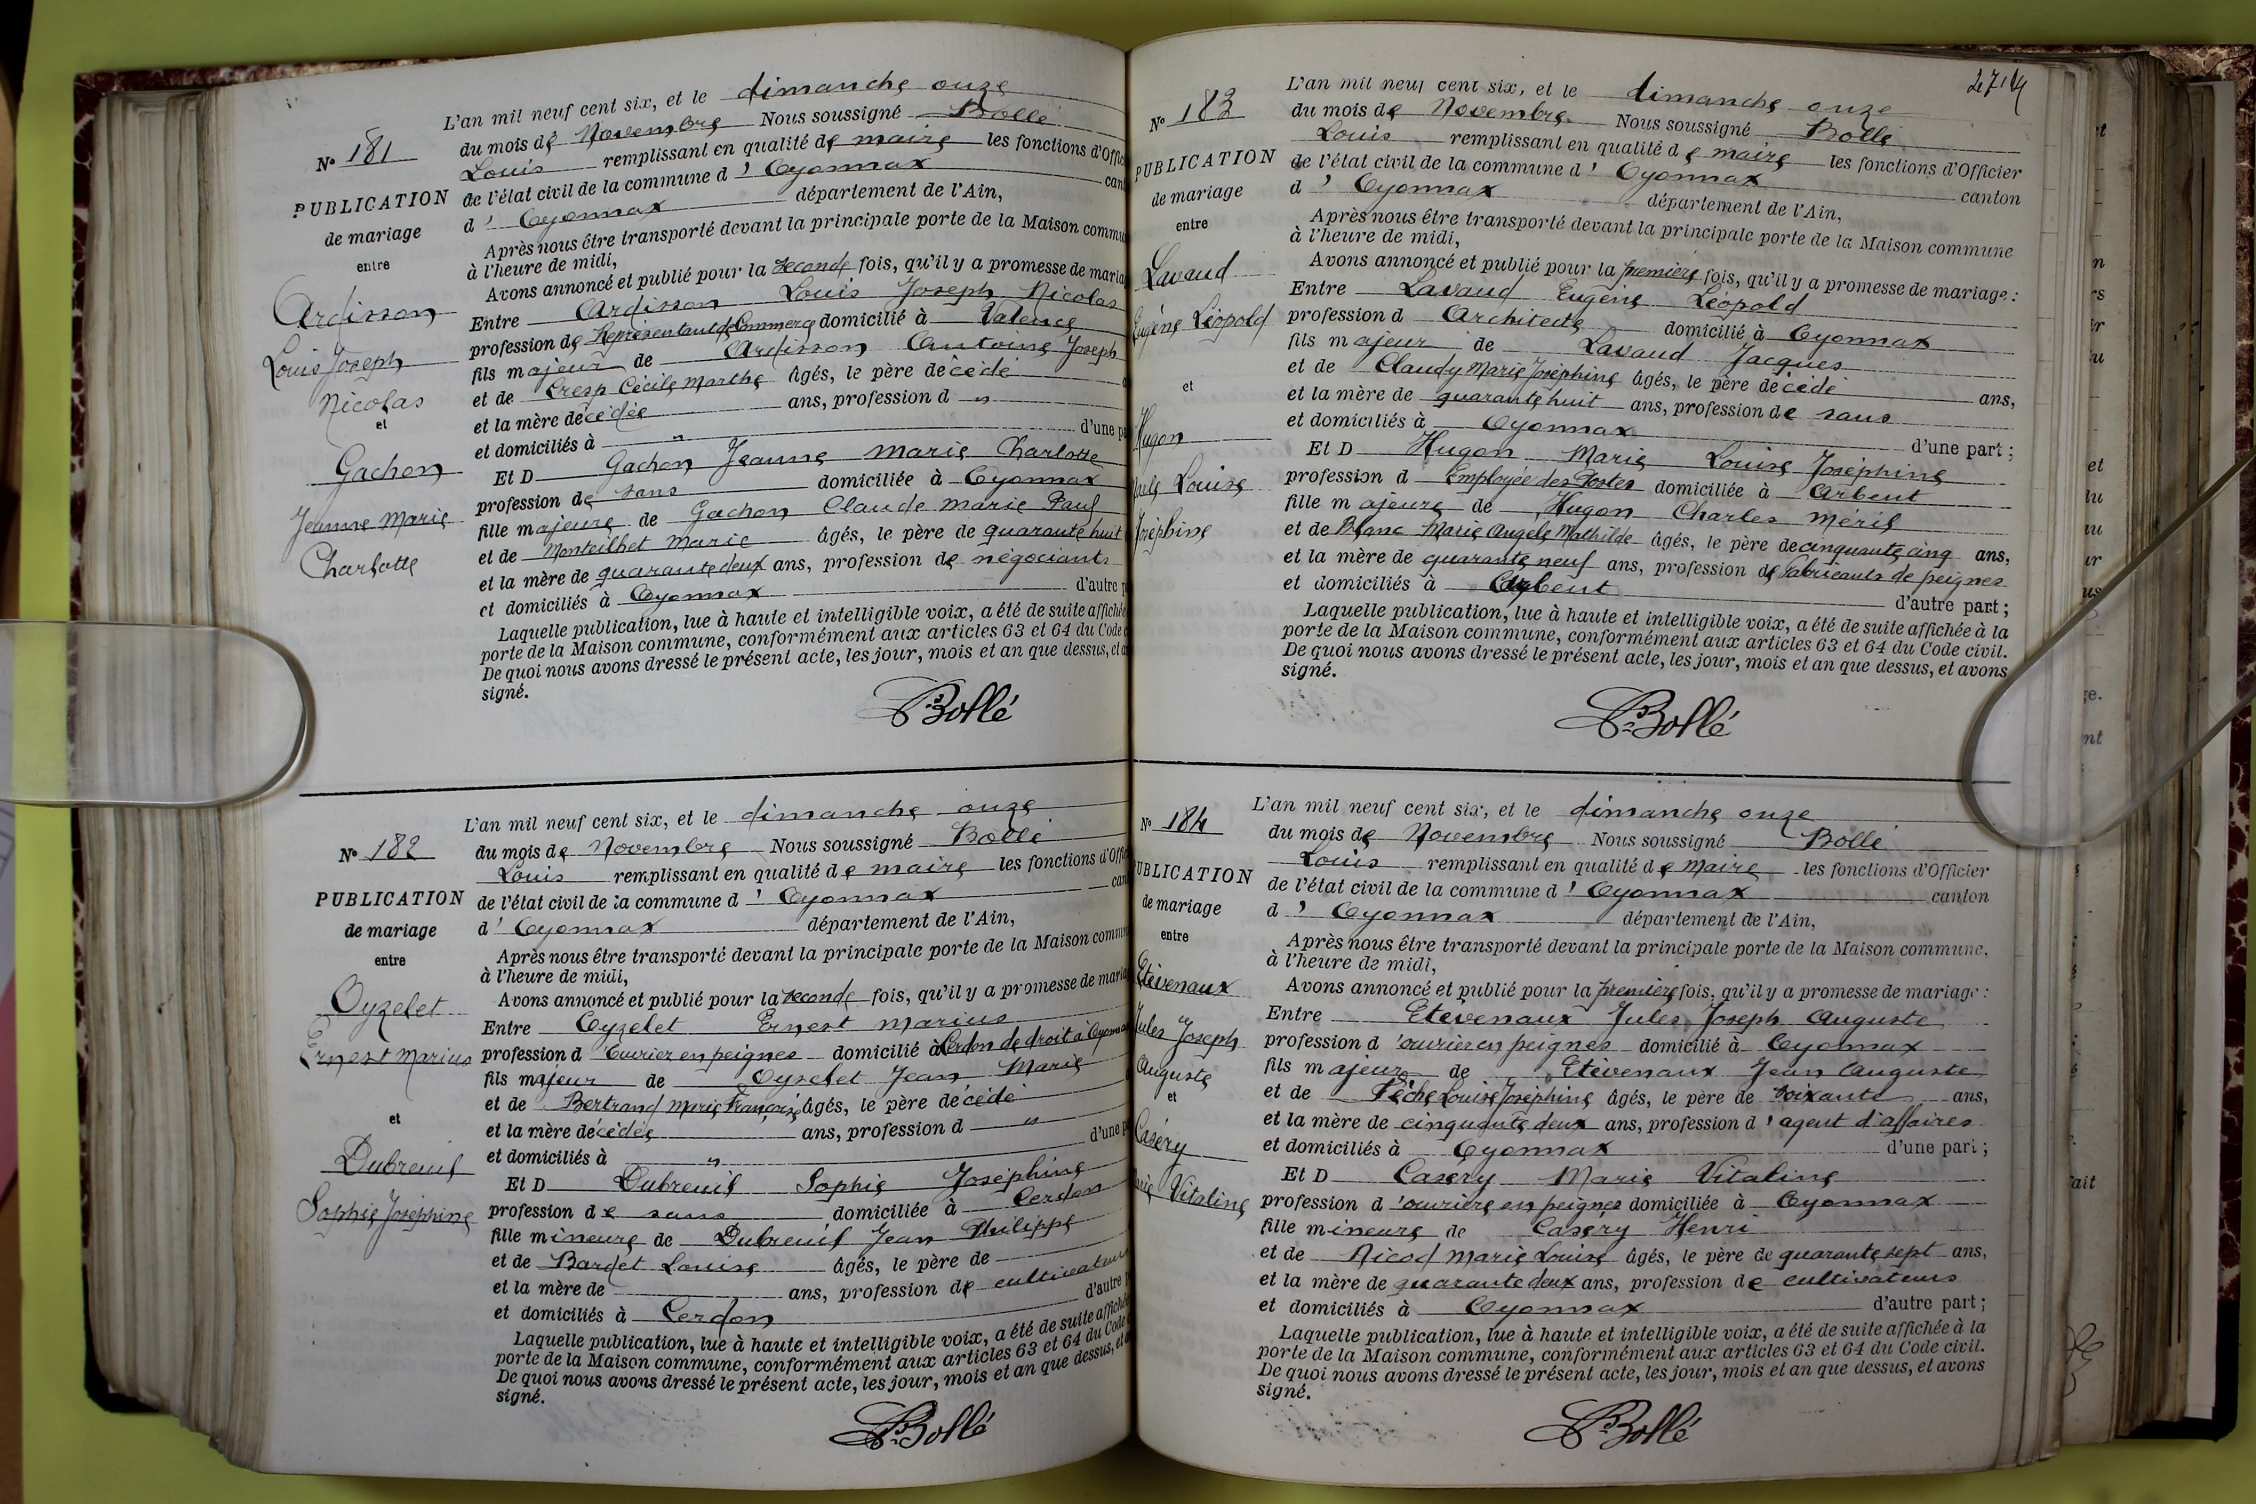 L'an mil neuf cent six, et le dimanche onze
N° 181
du mois de Novembre Nous soussigné Bollé
Louis remplissant en qualité de maire les fonctions d'Offic
PUBLICATION
de mariage
entre
Ardisson
Louis Joseph
Nicolas
et
Gachon
Jeanne Marie
Charlotte
de l'état civil de la commune d' Oyonnax can
d' Oyonnax département de l'Ain,
Après nous être transporté devant la principale porte de la Maison commu
à l'heure de midi,
Avons annoncé et publié pour la seconde fois, qu'il y a promesse de maria
Entre Ardisson Louis Joseph Nicolas
profession de Représentant de Commerce domicilié à Valence
fils majeur de Ardisson Antoine Joseph
et de Cresp Cécile Marthe âgés, le père décédé
et la mère décédée ans, profession d "
et domiciliés à " d'une pa
Et D Gachon Jeanne Marie Charlotte
profession de sans domiciliée à Oyonnax
fille majeure de Gachon Claude Marie Paul
et de Monteilhet Marie âgés, le père de quarante huit
et la mère de quarante deux ans, profession de négociants
et domiciliés à Oyonnax d'autre p
Laquelle publication, lue à haute et intelligible voix, a été de suite affichée
porte de la Maison commune, conformément aux articles 63 et 64 du Code c
De quoi nous avons dressé le présent acte, les jour, mois et an que dessus, et a
signé.
Bollé
L'an mil neuf cent six, et le dimanche onze
N° 182
du mois de Novembre Nous soussigné Bollé
Louis remplissant en qualité de maire les fonctions d'Offic
PUBLICATION
de mariage
entre
Oyzelet
Ernest Marius
et
Dubreuil
Sophie Joséphine
de l'état civil de la commune d' Oyonnax can
d' Oyonnax département de l'Ain,
Après nous être transporté devant la principale porte de la Maison commu
à l'heure de midi,
Avons annoncé et publié pour la seconde fois, qu'il y a promesse de maria
Entre Oyzelet Ernest Marius
profession d 'ouvrier en peignes domicilié à Cerdon de droit à Oyonnax
fils majeur de Oyselet Jean Marie
et de Bertrand Marie Françoise âgés, le père décédé
et la mère décédée ans, profession d "
et domiciliés à " d'une p
Et D Dubreuil Sophie Joséphine
profession de sans domiciliée à Cerdon
fille mineure de Dubreuil Jean Philippe
et de Bardet Louise âgés, le père de
et la mère de ans, profession de cultivateurs
et domiciliés à Cerdon d'autre p
Laquelle publication, lue à haute et intelligible voix, a été de suite affichée
porte de la Maison commune, conformément aux articles 63 et 64 du Code
De quoi nous avons dressé le présent acte, les jour, mois et an que dessus, et a
signé.
Bollé
L'an mil neuf cent six, et le dimanche onze
N° 183
du mois de Novembre Nous soussigné Bollé
Louis remplissant en qualité de maire les fonctions d'Officier
PUBLICATION
de mariage
entre
Lavaud
Eugène Léopold
et
Hugon
Louise
Joséphine
de l'état civil de la commune d' Oyonnax canton
d' Oyonnax département de l'Ain,
Après nous être transporté devant la principale porte de la Maison commune
à l'heure de midi,
Avons annoncé et publié pour la première fois, qu'il y a promesse de mariage :
Entre Lavaud Eugène Léopold
profession d Architecte domicilié à Oyonnax
fils majeur de Lavaud Jacques
et de Claudy Marie Joséphine âgés, le père décédé ans,
et la mère de quarante huit ans, profession de sans
et domiciliés à Oyonnax d'une part ;
Et D Hugon Marie Louise Joséphine
profession d Employée des Postes domiciliée à Arbent
fille majeure de Hugon Charles Méril
et de Blanc Marie Angèle Mathilde âgés, le père de cinquante cinq ans,
et la mère de quarante neuf ans, profession de fabricants de peignes
et domiciliés à Arbent d'autre part ;
Laquelle publication, lue à haute et intelligible voix, a été de suite affichée à la
porte de la Maison commune, conformément aux articles 63 et 64 du Code civil.
De quoi nous avons dressé le présent acte, les jour, mois et an que dessus, et avons
signé.
Bollé
L'an mil neuf cent six, et le dimanche onze
N° 184
du mois de Novembre Nous soussigné Bollé
Louis remplissant en qualité de maire les fonctions d'Officier
PUBLICATION
de mariage
entre
Etévenaux
Jules Joseph
Auguste
et
Caséry
Marie Vitaline
de l'état civil de la commune d' Oyonnax canton
d' Oyonnax département de l'Ain,
Après nous être transporté devant la principale porte de la Maison commune.
à l'heure de midi,
Avons annoncé et publié pour la première fois, qu'il y a promesse de mariage :
Entre Etévenaux Jules Joseph Auguste
profession d 'ouvrier en peignes domicilié à Oyonnax
fils majeur de Etévenaux Jean Auguste
et de Pêche Louise Joséphine âgés, le père de soixante ans,
et la mère de cinquante deux ans, profession d 'agent d'affaires
et domiciliés à Oyonnax d'une part ;
Et D Caséry Marie Vitaline
profession d 'ouvrière en peignes domiciliée à Oyonnax
fille mineure de Caséry Henri
et de Nicod Marie Louise âgés, le père de quarante sept ans,
et la mère de quarante deux ans, profession de cultivateurs
et domiciliés à Oyonnax d'autre part ;
Laquelle publication, lue à haute et intelligible voix, a été de suite affichée à la
porte de la Maison commune, conformément aux articles 63 et 64 du Code civil.
De quoi nous avons dressé le présent acte, les jour, mois et an que dessus, et avons
signé.
Bollé